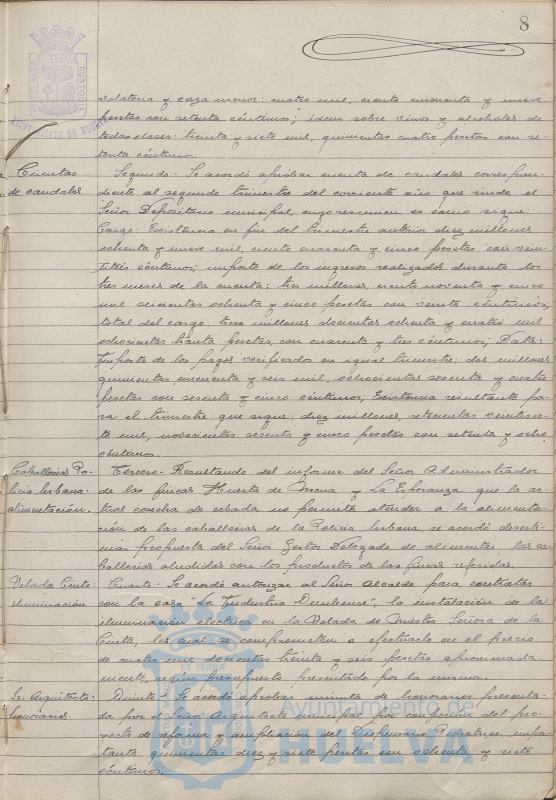 8
volateria y caza menor: cuatro mil, ciento cincuenta y nueve
pesetas con setenta céntimos; idem sobre vinos y alcoholes de
todas clases: treinta y siete mil, quinientas cuatro pesetas con se-
tenta céntimos.
Cuentas
de caudales
Segundo- Se acordó aprobar cuenta de caudales correspon-
diente al segundo trimestre del corriente año que rinde el
Señor Depositario municipal, cuyo resumen es como sigue:
Cargo: Existencia en fin del trimestre anterior diez millones
ochenta y nueve mil, ciento cuarenta y cinco pesetas con vein-
titrés céntimos; importe de los ingresos realizados durante los
tres meses de la cuenta: tres millones, ciento noventa y cinco
mil setecientas ochenta y cinco pesetas con veinte céntimos;
total del cargo: trece millones doscientas ochenta y cuatro mil
ochocientas treinta pesetas, con cuarenta y tres céntimos; Data:
Importe de los pagos verificados en igual trimestre: dos millones
quinientas cincuenta y seis mil, ochocientas sesenta y cuatro
pesetas con sesenta y cinco céntimos; Existencia resultante pa-
ra el trimestre que sigue: diez millones, setecientas veintisie-
te mil, novecientas sesenta y cinco pesetas con setenta y ocho
céntimos.
Caballerias Po-
licia Urbana:
alimentación.
Tercero- Resultando del informe del Señor Administrador
de las fincas Huerta de Mena y La Esperanza que la ac-
tual cosecha de cebada no permite atender a la alimenta-
ción de las caballerias de la Policia Urbana, se acordó desesti-
mar propuesta del Señor Gestor Delegado de alimentar las ca-
ballerias aludidas con los productos de las fincas referidas.
Velada Cinta:
iluminación
Cuarto- Se acordó autorizar al Señor Alcalde para contratar
con la casa "La Industria", la instalación de la
iluminación eléctrica en la Velada de Nuestra Señora de la
Cinta, la cual se comprometen a efectuarlo en el precio
de cuatro mil doscientas treinta y seis pesetas aproximada-
mente, según presupuesto presentado por la misma.
Sr. Arquitecto:
honorarios.
Quinto- Se acordó aprobar minuta de honorarios presenta-
da por el Señor Arquitecto municipal por confección del pro-
yecto de reforma y ampliación del Dispensario Pediatrico, impor-
tante quinientas diez y siete pesetas con ochenta y siete
céntimos.
Ayuntamiento de
HUELVA